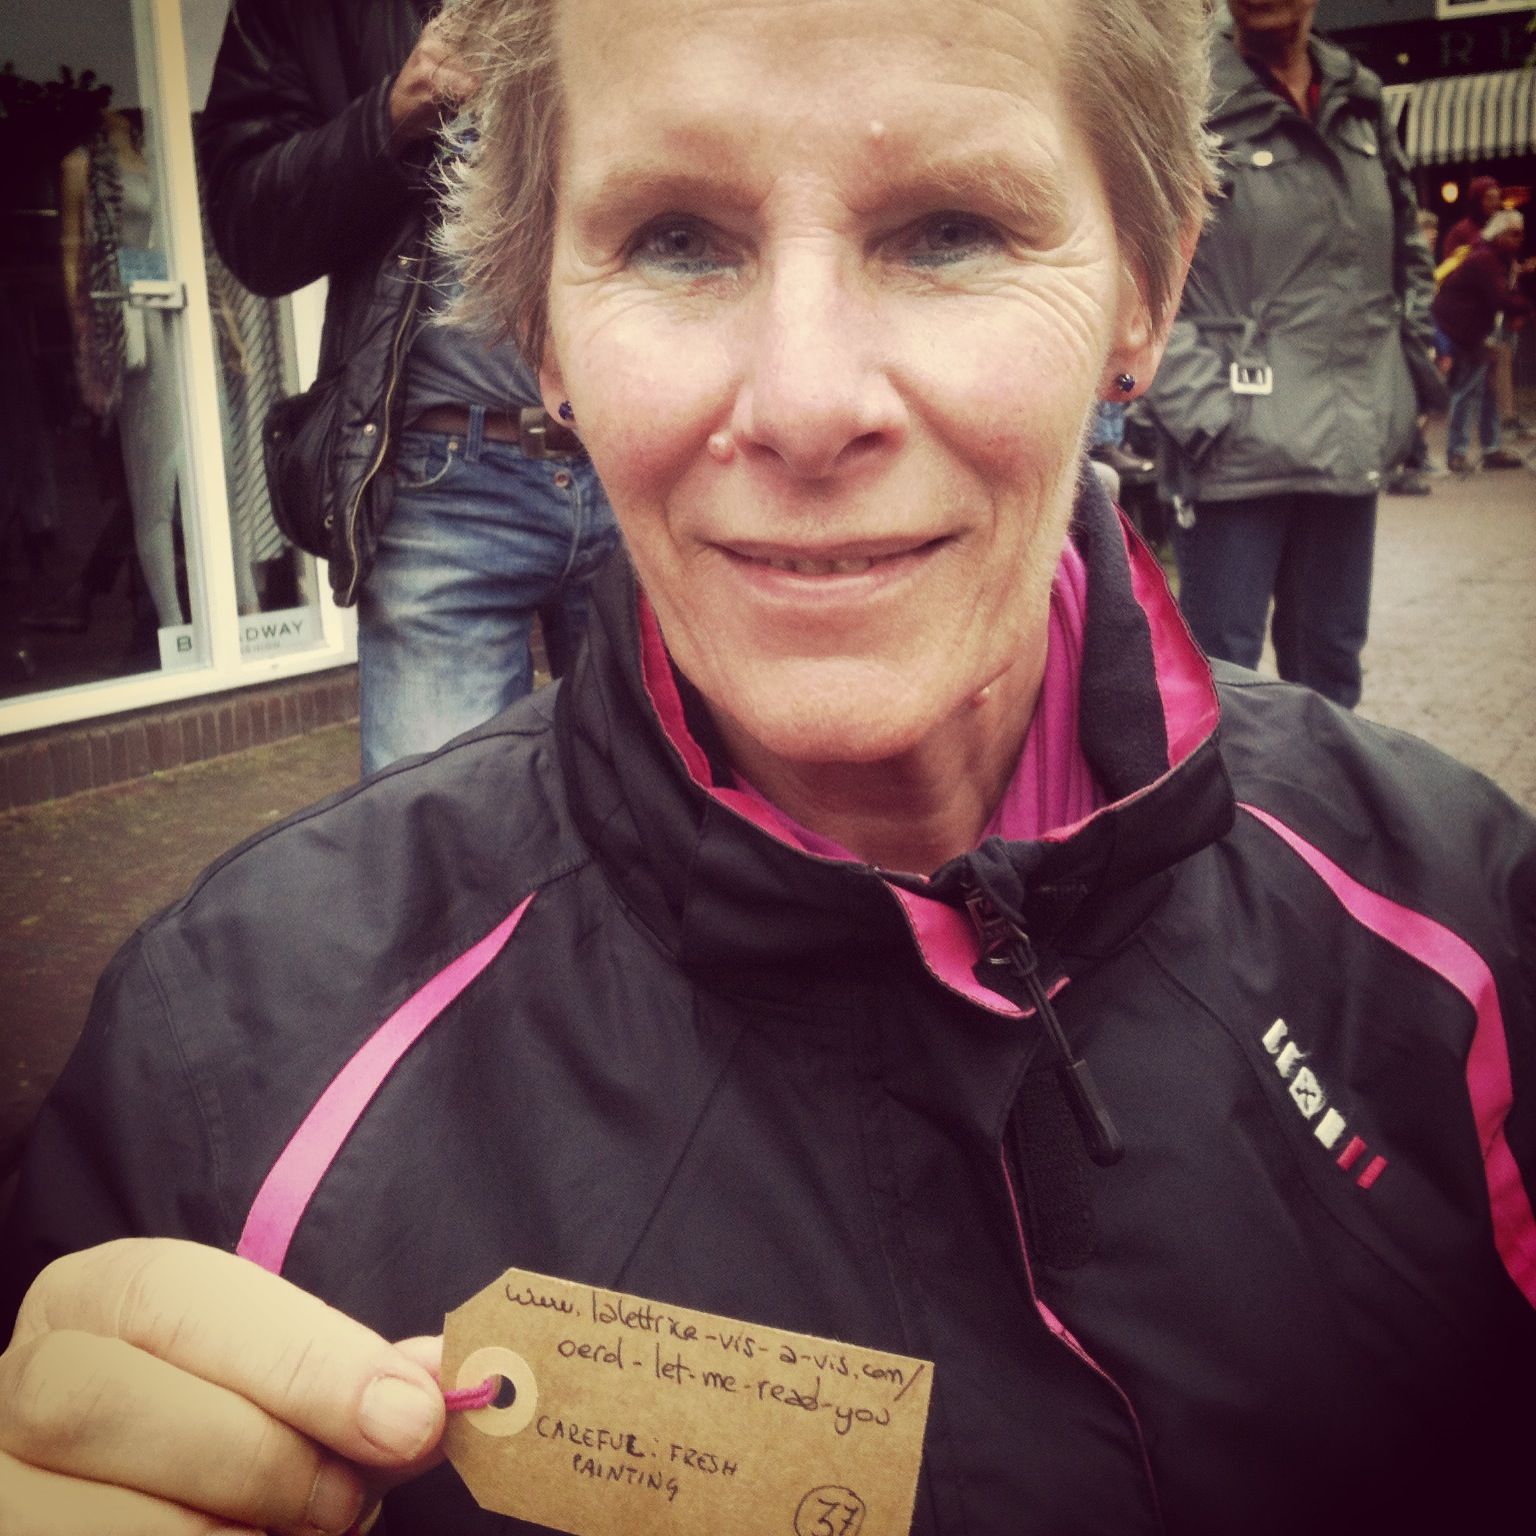 www.lalettrice-vis-a-vis.com/
oerol-let-me-read-you
CAREFUL: FRESH
PAINTING
37